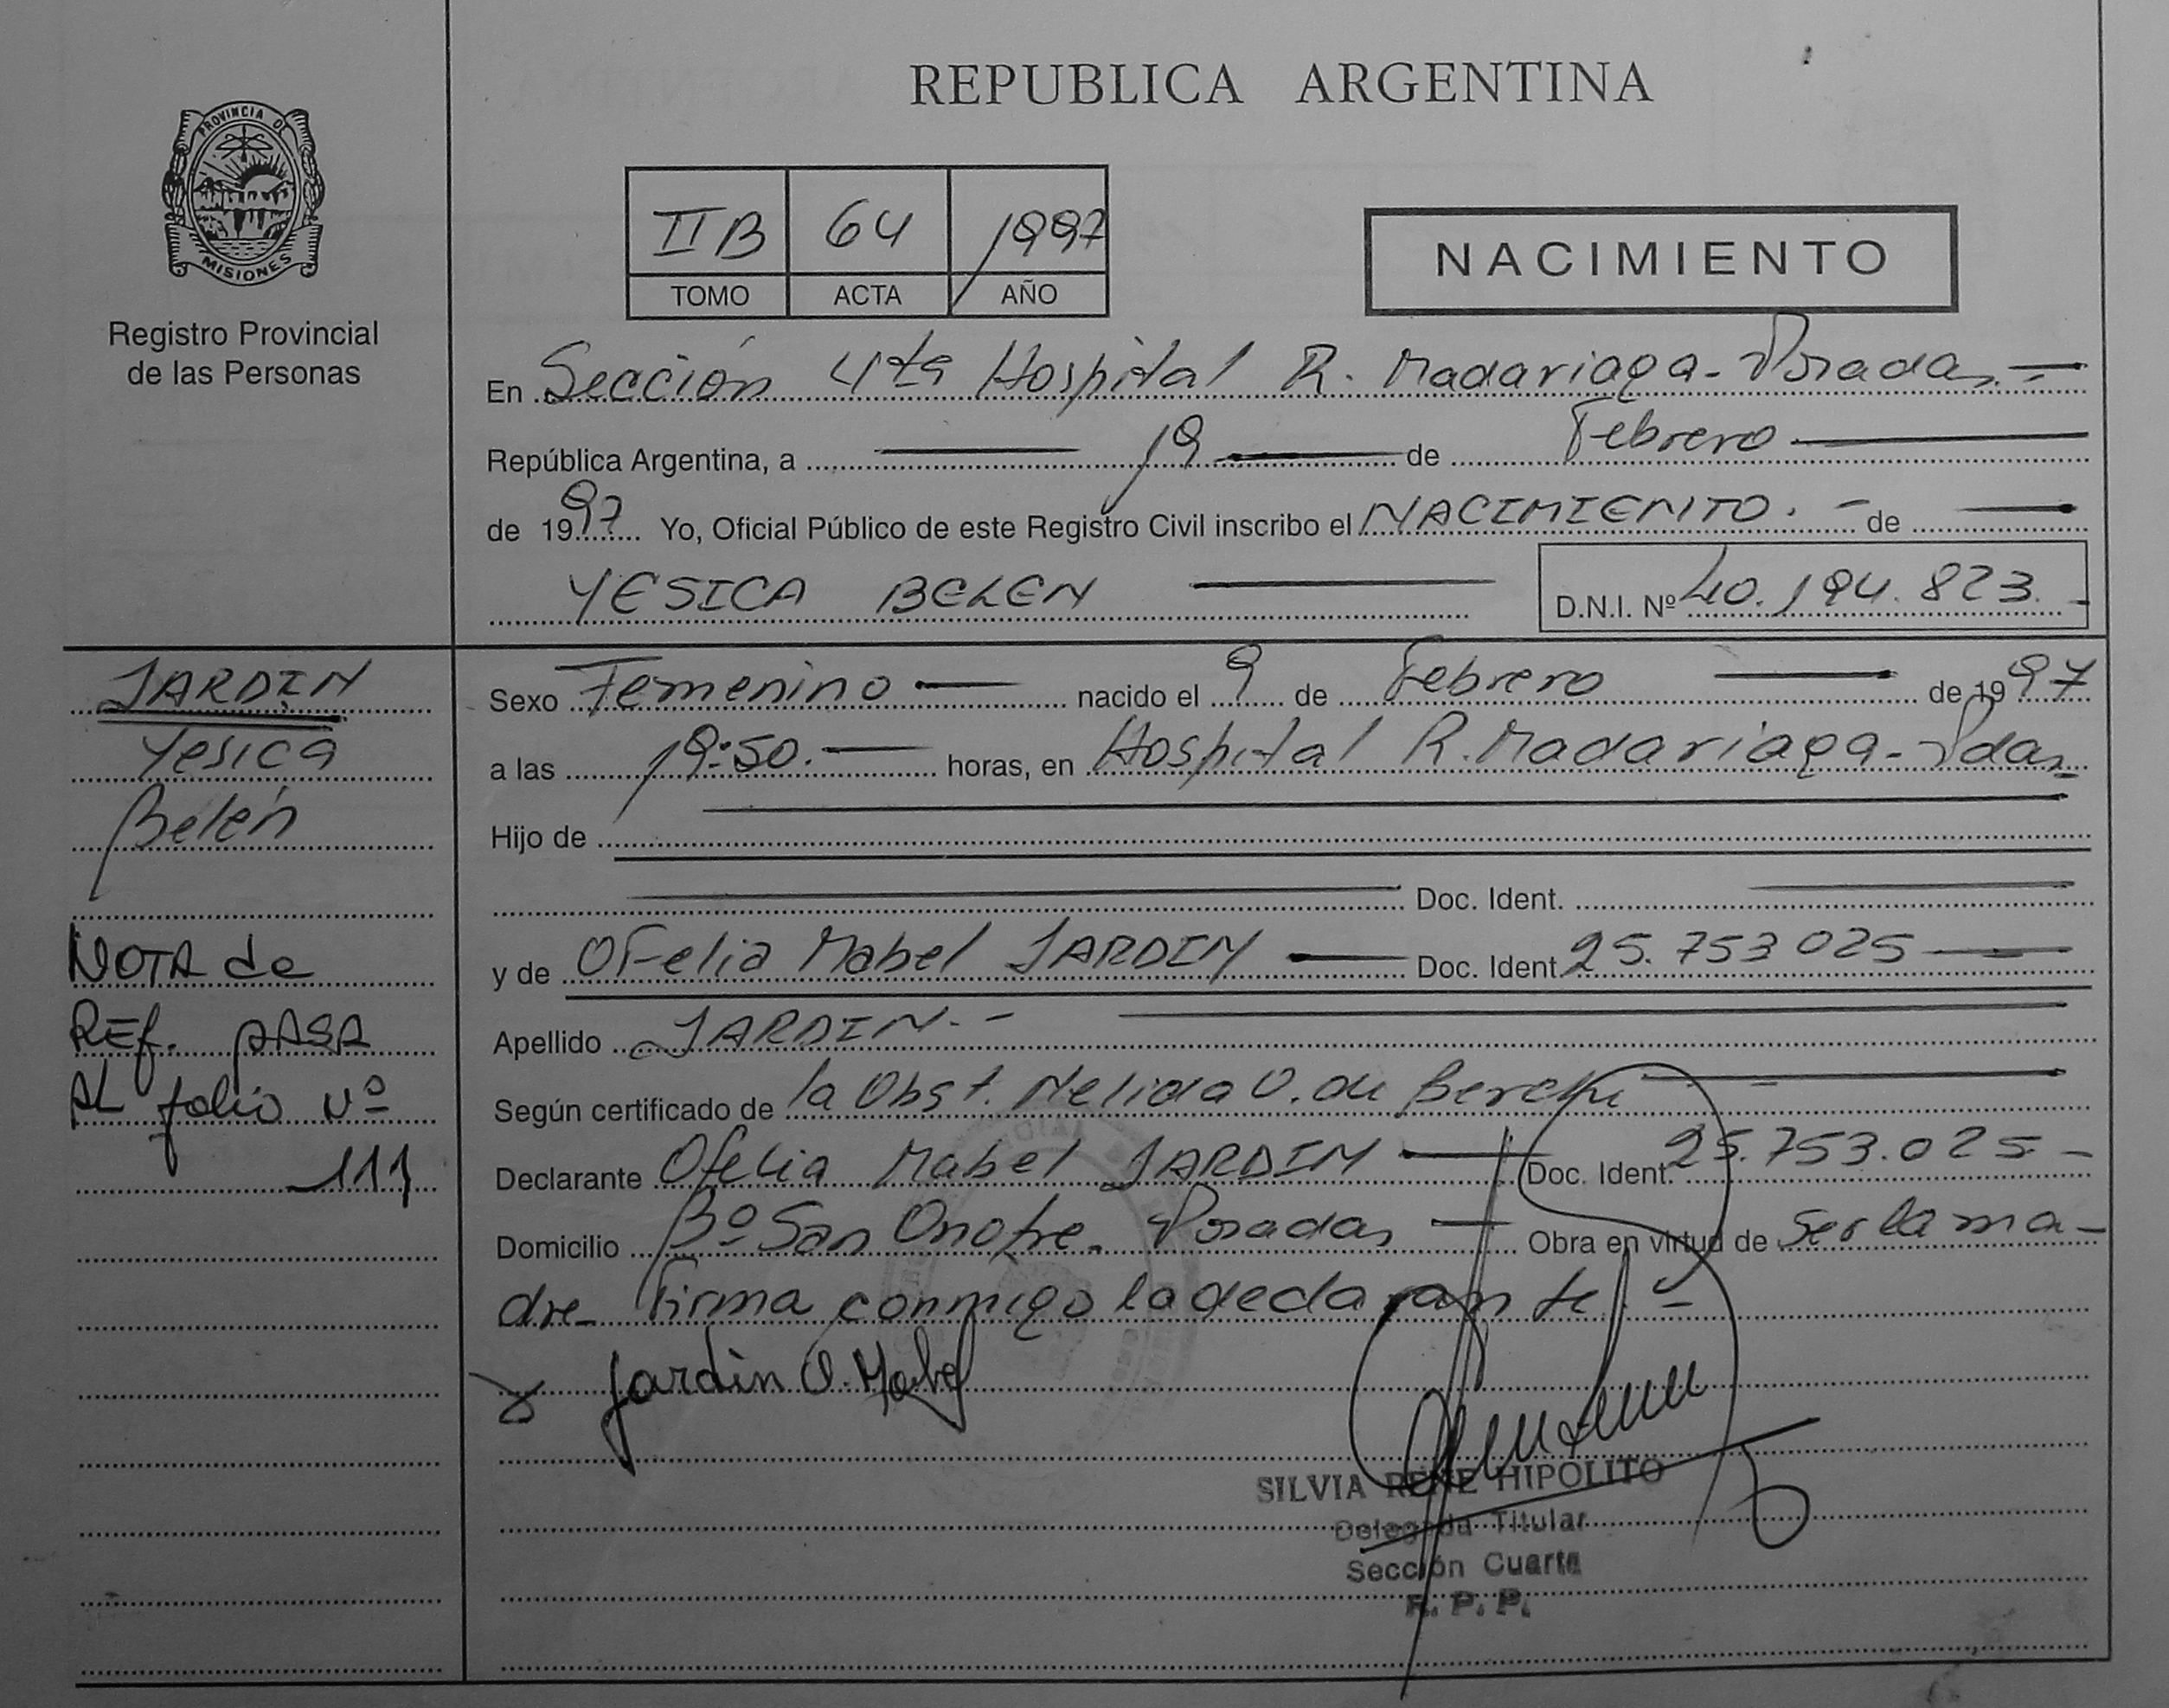 REPUBLICA ARGENTINA
PROVINCIA DE
MISIONES
Registro Provincial
de las Personas
II B 64 1997
TOMO ACTA AÑO
NACIMIENTO
En Sección 4ta Hospital R. Madariaga - Posadas. -
República Argentina, a 19 de Febrero
de 1997 Yo, Oficial Público de este Registro Civil inscribo el NACIMIENTO. - de
YESICA BELEN
D.N.I. Nº 40.194.823. -
JARDIN
Yesica
Belén
NOTA de
REf. pASA
AL folio Nº
111
Sexo Femenino nacido el 9 de Febrero de 1997
a las 19:50. horas, en Hospital R. Madariaga - Pdas.
Hijo de
Doc. Ident.
y de OFelia Mabel JARDIN Doc. Ident. 25.753 025
Apellido JARDIN. -
Según certificado de la Obst. Nelida O. de
Declarante Ofelia Mabel JARDIN Doc. Ident. 25.753.025 -
Domicilio Bº San Onofre - Posadas Obra en virtud de ser la ma-
dre - Firma conmigo la declarante. -
Jardin O. Mabel
SILVIA RENE HIPOLITO
Delegada Titular
Sección Cuarta
R. P. P.